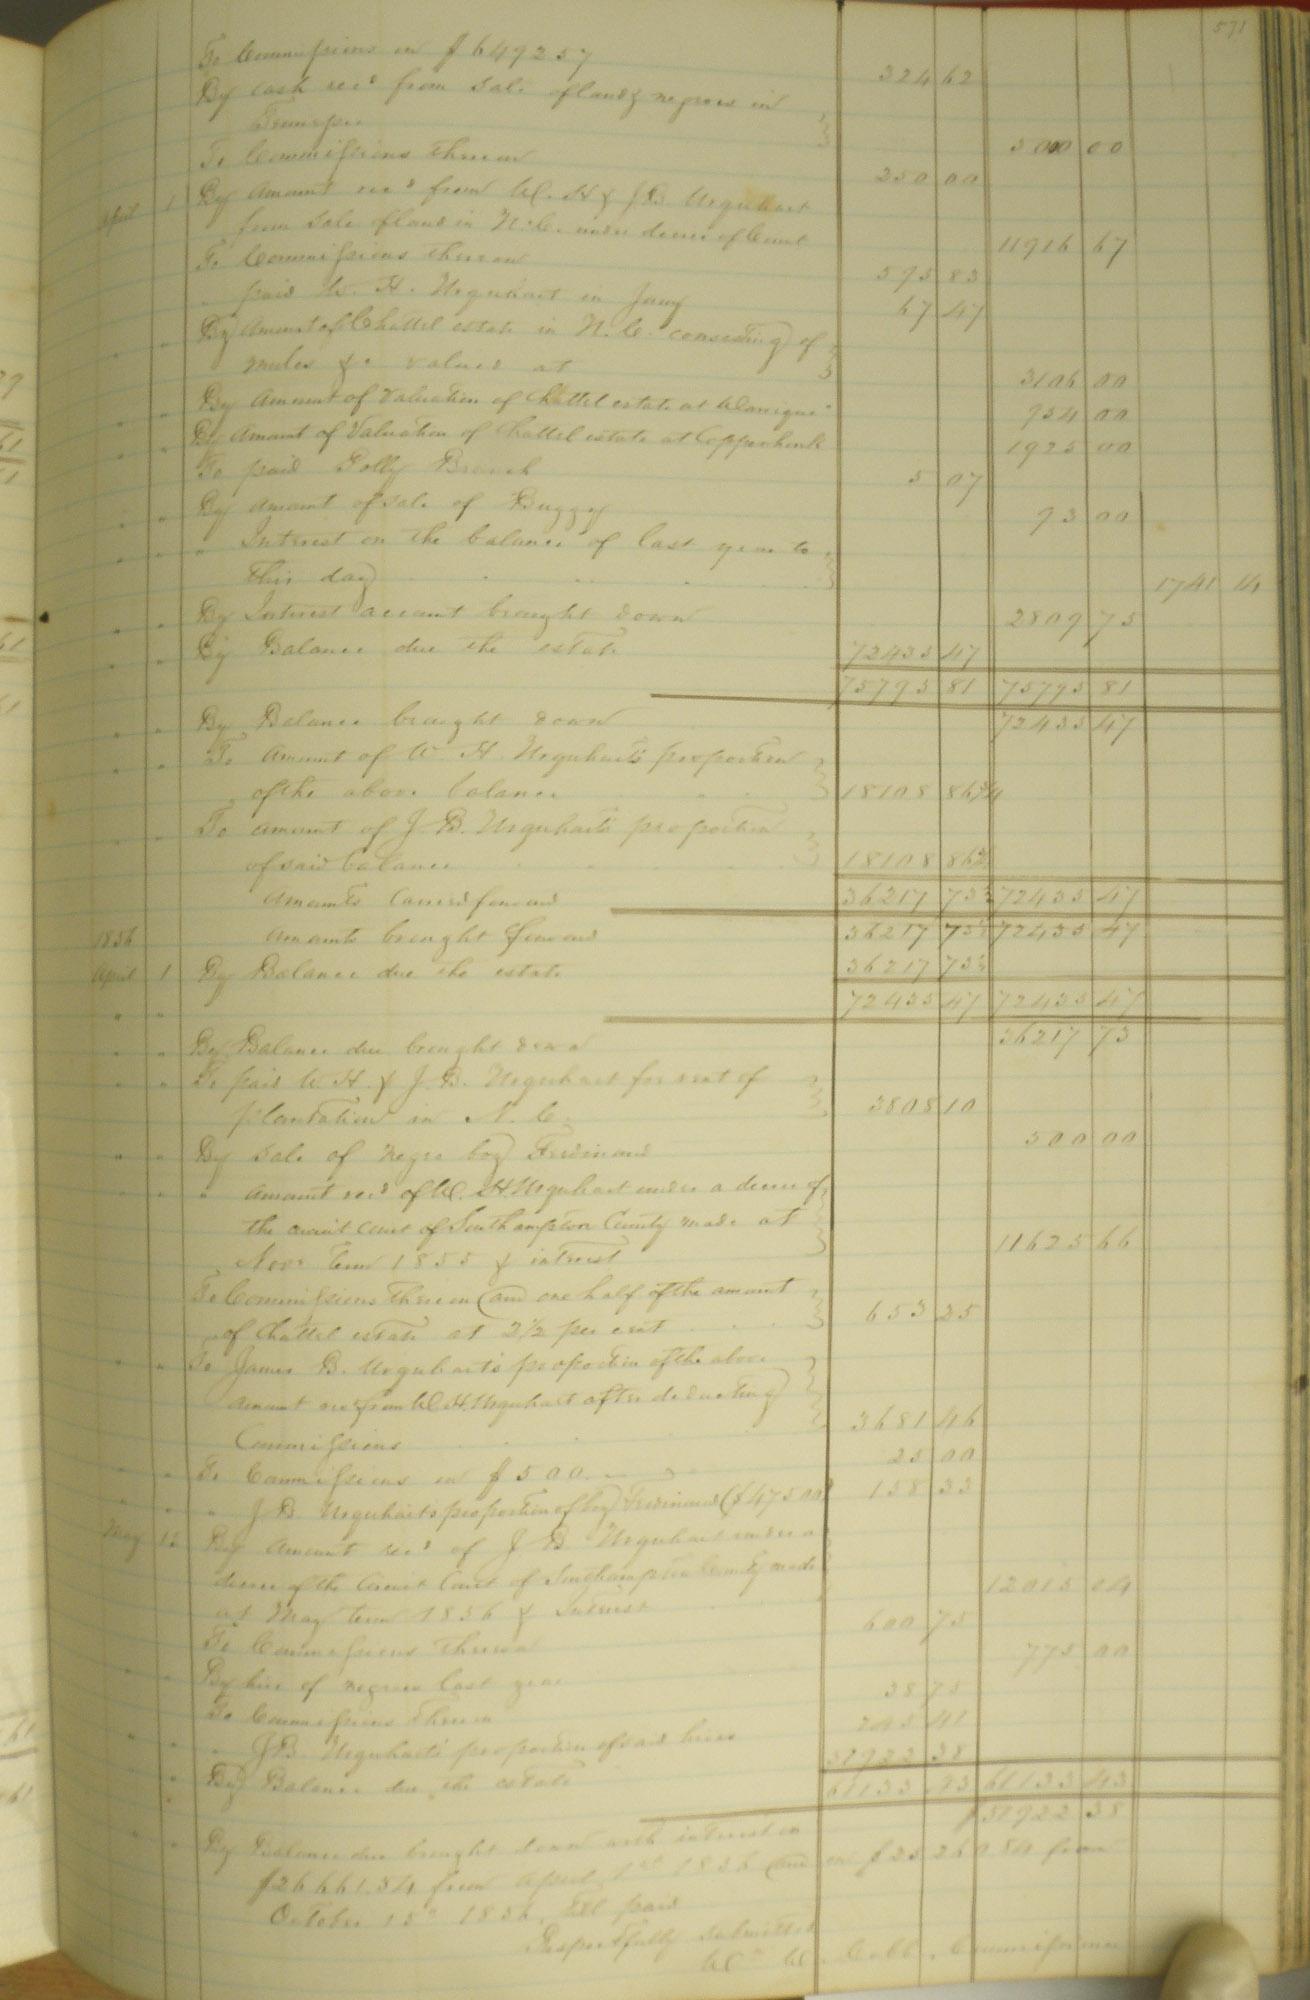 571
To Commissions on $6492 57 324 62
By cash recd from sale of land & negroes in
Tennessee 5000 00
To Commissions thereon 250 00
April 1 By Amount recd from W. H & J B Urquhart
from sale of land in N. C. under decree of Court 11916 67
To Commissions thereon 595 83
" paid W. H. Urquhart in Jany 67 47
" By Amount of Chattel estate in N. C. consisting of
mules &c valued at 3106 00
" By Amount of Valuation of Chattel estate at 954 00
" By Amount of Valuation of Chattel estate at Coppahonk 1925 00
To paid Polly Branch 5 07
" " By Amount of sale of Buggy 93 00
" " " Interest on the balance of last year to
this day 1741 14
" " By Interest account brought down 2809 75
" " By Balance due the estate 72435 47
75795 81 75795 81
" " By Balance brought down 72435 47
" " To Amount of W H Urquhart's proportion
of the above balance 18108 86 3/4
" " To amount of J B. Urquhart's proportion
of said balance 18108 86 3/4
Amounts carried forward 36217 73 1/2 72435 47
1856 Amounts brought forward 36217 73 1/2 72435 47
April 1 By Balance due the estate 36217 73 1/2
" " 72435 47 72435 47
" " By Balance due brought down 36217 73
" " To paid W H. & J. B. Urquhart for rent of
plantation in N. C. 3808 10
" " By sale of negro boy Ferdinand 500 00
" " " Amount recd of W. H. Urquhart under a decree of
the circuit court of Southampton County made at
Novr Term 1855 & interest 11625 66
To Commissions thereon (and one half of the amount
of Chattel estate at 2½ per cent 653 25
" " To James B. Urquhart's proportion of the above
amount recd from W. H. Urquhart after deducting
Commissions 3681 46
" " To Commissions on $500. 25 00
" " " J B Urquharts proportion of boy Ferdinand ($475 00) 158 33
May 12 By Amount recd of J B Urquhart under a
decree of the Circuit Court of Southampton County made
at May term 1856 & Interest 12015 04
To Commissions thereon 600 75
" " By hire of negroes last year 775 00
To Commissions thereon 38 75
" " " J B. Urquhart's proportion of said hires 245 41
" By Balance due the estate 51922 38
" 61133 43 61133 43
$51922 38
" " By Balance due brought down with interest on
$26661.34 from April 1st 1856 (and on $25260.84 from
October 15th 1856, till paid
Respectfully submitted
Wm W. Cobb. Commissioner